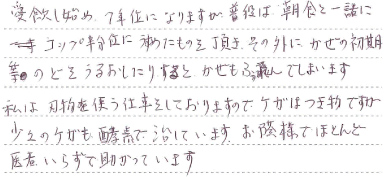 愛飲し始め、7年位になりますが普段は朝食と一緒に
コップ半分位に薄めたものを頂き、その外にかぜの初期
等のどをうるおしたりするとかぜもふ飛んでしまいます
私は刃物を使う仕事をしておりますのでケガはつき物ですが
少々のケガも酵素で治しています。お陰様でほとんど
医者いらずで助かっています